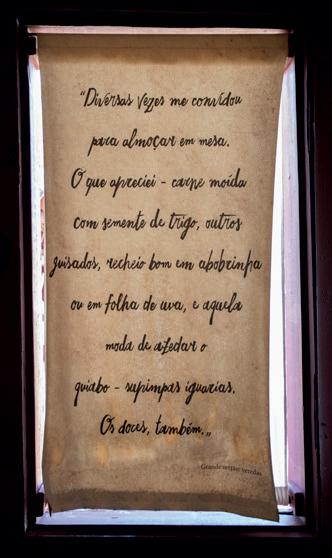 “Diversas vezes me convidou
para almoçar em mesa.
O que apreciei - carne moída
com semente de trigo, outros
guisados, recheio bom em abobrinha
ou em folha de uva, e aquela
moda de azedar o
quiabo - supimpas iguarias.
Os doces, também.„
Grande sertão: veredas